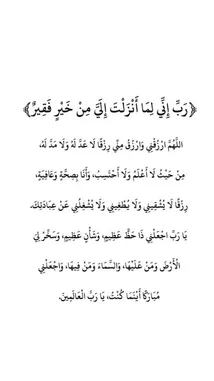 ﴿رَبِّ إِنِّي لِمَا أَنْزَلْتَ إِلَيَّ مِنْ خَيْرٍ فَقِيرٌ﴾
اللَّهُمَّ ارْزُقْنِي وَارْزُقْ مِنِّي رِزْقًا لَا عَدَّ لَهُ وَلَا مَدَّ لَهُ،
مِنْ حَيْثُ لَا أَعْلَمُ وَلَا أَحْتَسِبُ، وَأَنَا بِصِحَّةٍ وَعَافِيَةٍ،
رِزْقًا لَا يُشْقِينِي وَلَا يُطْغِينِي وَلَا يُشْغِلُنِي عَنْ عِبَادَتِكَ.
يَا رَبِّ اجْعَلْنِي ذَا حَظٍّ عَظِيمٍ، وَشَأْنٍ عَظِيمٍ، وَسَخِّرْ لِيَ
الْأَرْضَ وَمَنْ عَلَيْهَا، وَالسَّمَاءَ وَمَنْ فِيهَا، وَاجْعَلْنِي
مُبَارَكًا أَيْنَمَا كُنْتُ، يَا رَبَّ الْعَالَمِينَ.